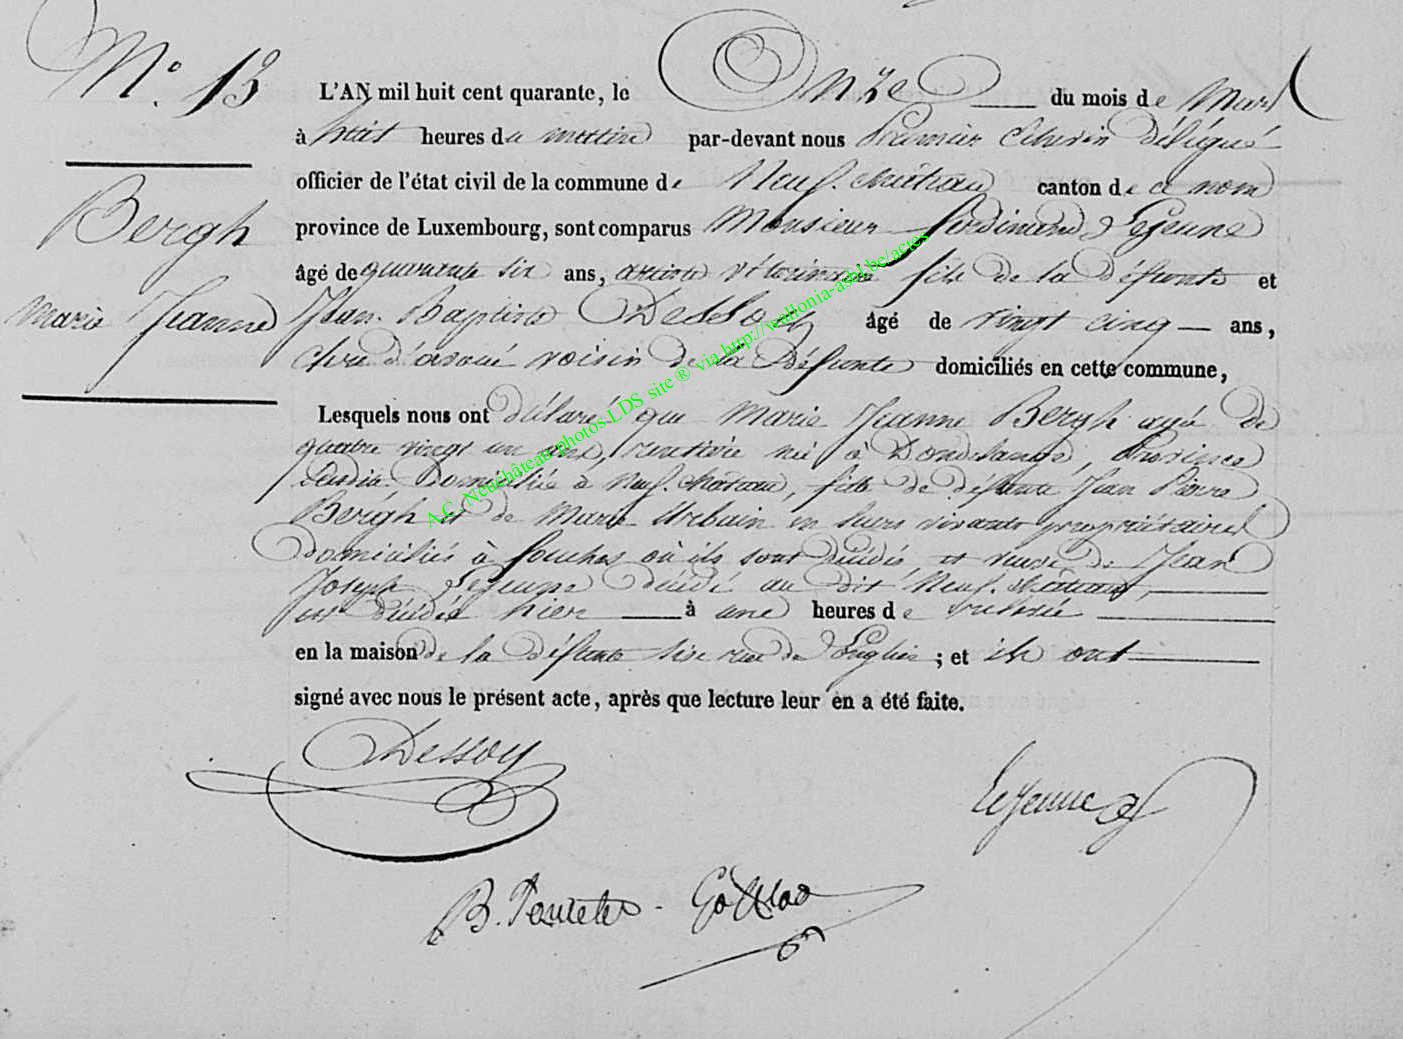 N.° 13
Bergh
Marie Jeanne
L'AN mil huit cent quarante, le Onze du mois de Mars
à huit heures du matin par-devant nous Premier Echevin délégué
officier de l'état civil de la commune de Neuf.château canton de ce nom
province de Luxembourg, sont comparus Monsieur Ferdinand Lejeune
âgé de quarante six ans, artiste vétérinaire fils de la défunte et
Jean Baptiste Dessoy âgé de vingt cinq ans,
clerc d'avoué voisin de la défunte domiciliés en cette commune,
Lesquels nous ont déclaré que Marie Jeanne Bergh agée de
quatre vingt un ans, rentière née à
domiciliée à Neuf.château, fille de défunts Jean Pierre
Bergh et de Marie Urbain en leurs vivants propriétaires
domiciliés à où ils sont décédés, et veuve de Jean
Joseph Lejeune décédé au dit Neuf.château,
est décédée hier à une heures de relevée
en la maison de la défunte sise rue de ; et ils ont
signé avec nous le présent acte, après que lecture leur en a été faite.
Dessoy
Lejeune
A.C. Neufchâteau photos LDS site ® via http://wallonia-asbl.be/actes